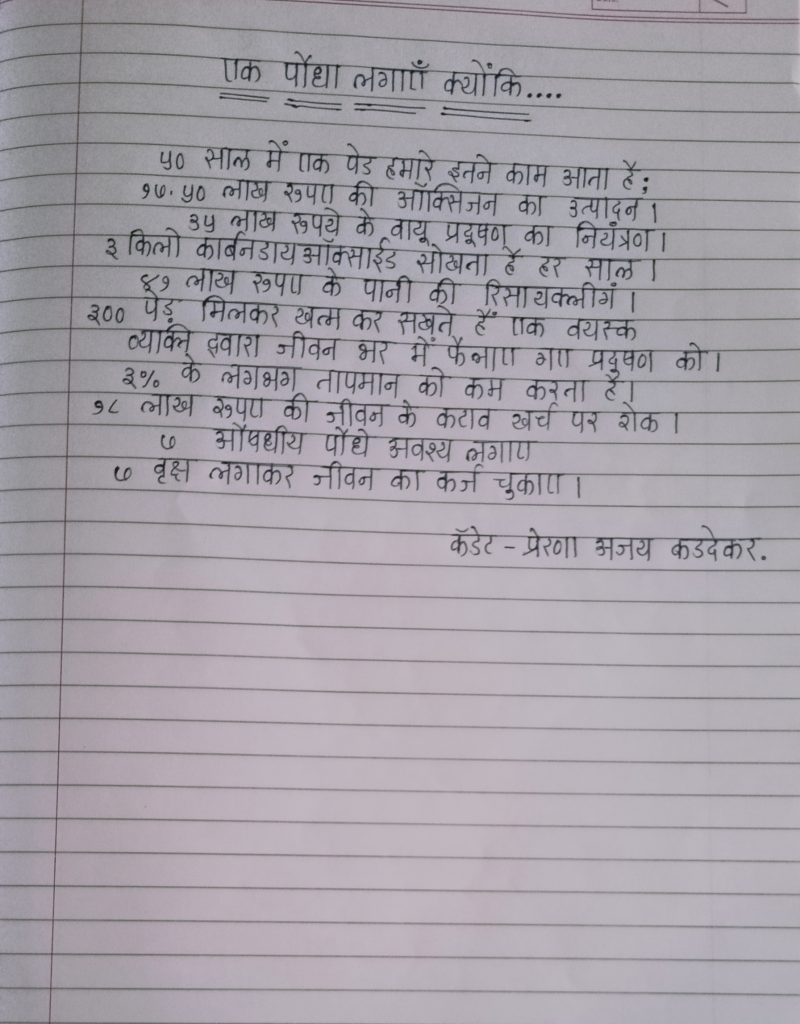 एक पौधा लगाएँ क्योंकि....
५० साल में एक पेड हमारे इतने काम आता है;
१७.५० लाख रुपए की ऑक्सिजन का उत्पादन।
३५ लाख रुपये के वायू प्रदूषण का नियंत्रण।
३ किलो कार्बनडायऑक्साईड सोखता है हर साल।
४१ लाख रुपए के पानी की रिसायक्लींग।
३०० पेड़ मिलकर खत्म कर सखते हैं एक वयस्क
व्यक्ति द्वारा जीवन भर में फैलाए गए प्रदुषण को।
३% के लगभग तापमान को कम करता है।
१८ लाख रुपए की जीवन के कटाव खर्च पर रोक।
७ औषधीय पौधे अवश्य लगाए
७ वृक्ष लगाकर जीवन का कर्ज चुकाए।
कॅडेट - प्रेरणा अजय कडदेकर.